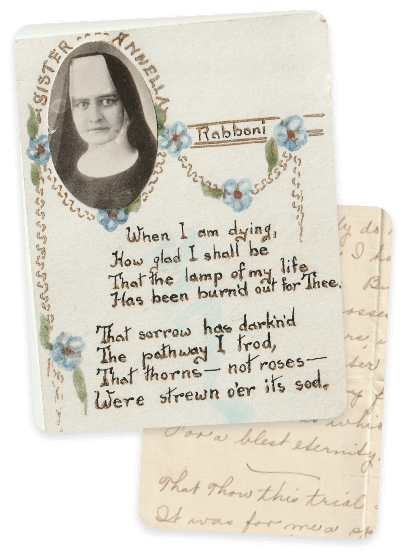 SISTER ANNELLA
Rabboni
When I am dying,
How glad I shall be
That the lamp of my life
Has been burn'd out for Thee.
That sorrow has dark'n'd
The pathway I trod,
That thorns — not roses —
Were strewn o'er its sod.
I
For a blest eternity.
That Thou this trial
It was for me a